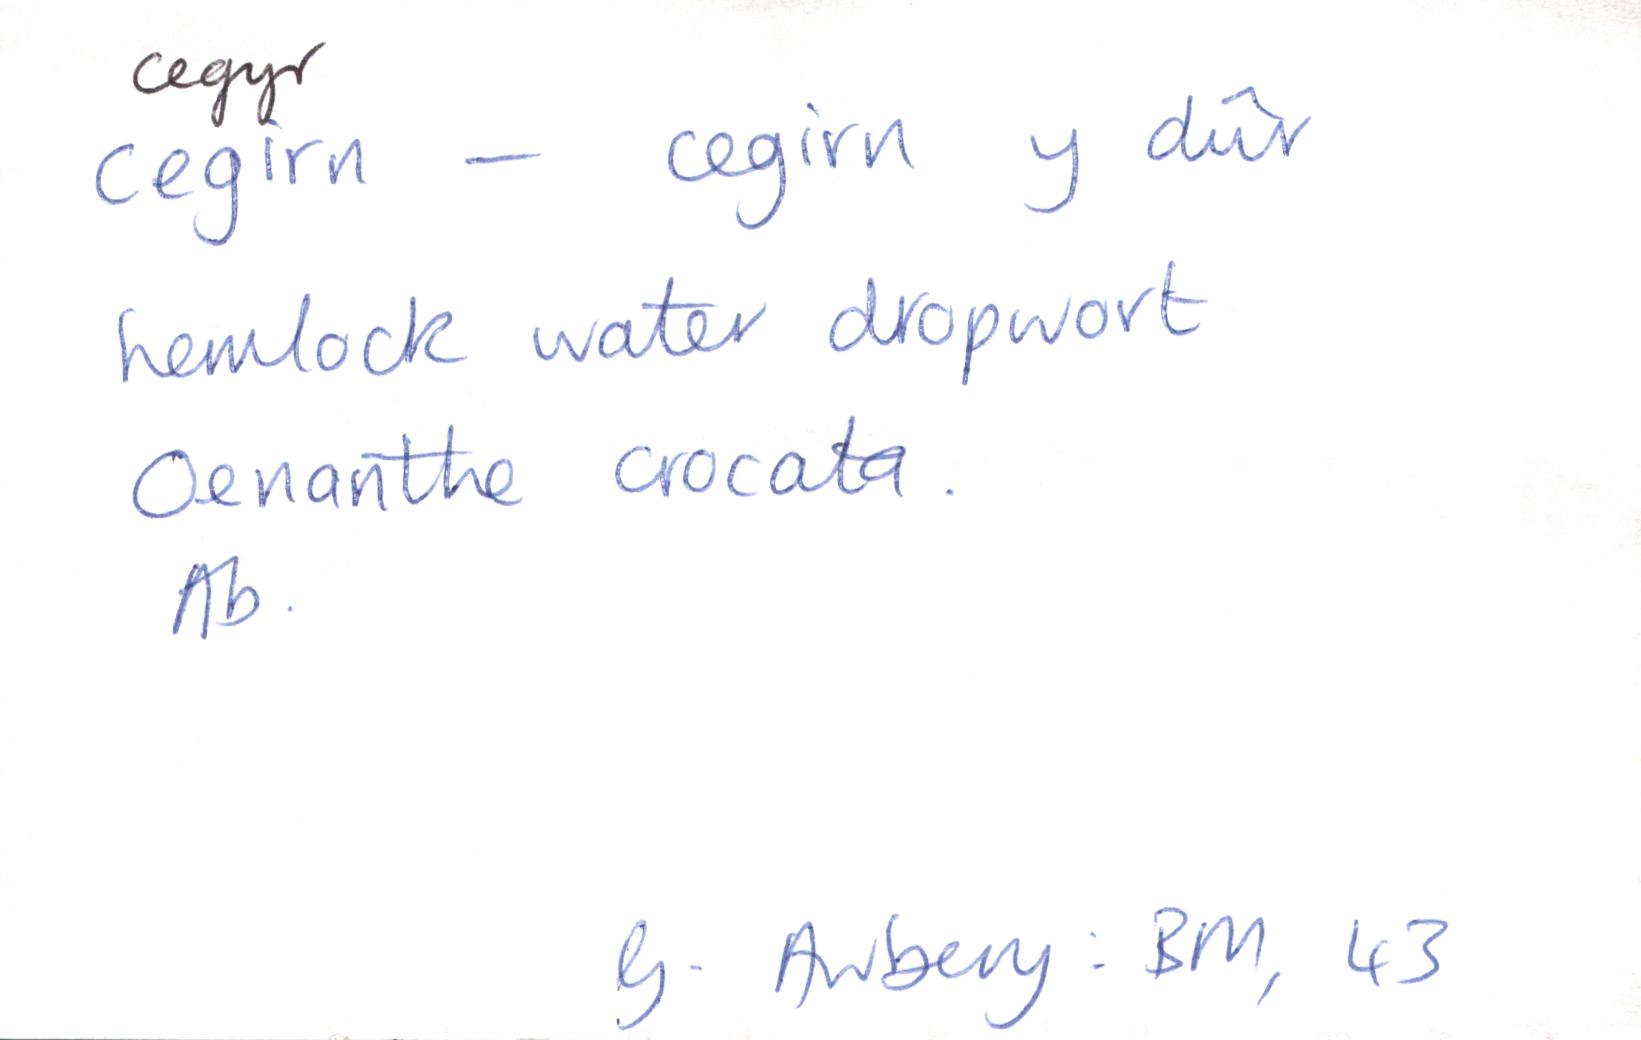 cegyr
cegirn — cegirn y dûr
hemlock water dropwort
Oenanthe crocata.
Ab.
G. Awbery: BM, 43